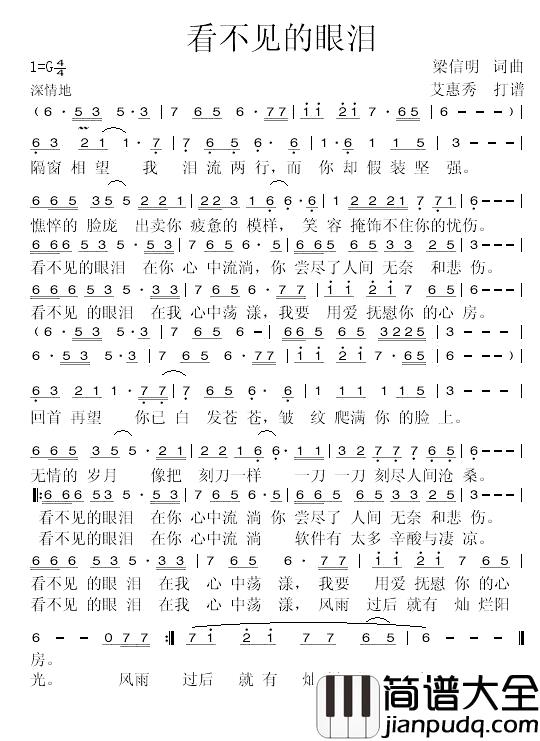 看不见的眼泪
1=G4/4
梁信明 词曲
深情地
艾惠秀 打谱
(6·53 53 5·3|7 65 6·77|i i 2i 7·65|6---)|
63 21 1·7|7 65 6·6·|1·6 1 15|3---|
隔窗相望 我 泪流两行,而 你却假装坚 强。
665 35 5 221|223 166·6·|2221 771|6---|
憔悴的 脸庞 出卖你 疲惫的 模样, 笑 容 掩饰不住你的忧伤。
666 53 535·3|7 65 6·6·|665 653 3 25|3---|
看不见的眼泪 在你 心 中流淌,你 尝尽了人间 无奈 和悲 伤。
666 53 535·3|7 65 6·77|i i 2i 7 65|6---|
看不见的 眼泪 在我 心 中荡 漾,我要 用爱 抚慰你 的心 房。
(6·53 53 5·3|7 65 6·6·|665 65 3225|3---|
6·53 53 5·3|7 65 6·77|i i 2i 7·65|6---)|
63 221·77|765 6·6·|1 11 115|3---|
回首 再望 你已 白 发苍 苍,皱 纹 爬满 你 的 脸 上。
665 35 5·21|2 2 3 1 66·|3 2 7 77 65|6---|
无情的 岁月 像把 刻刀一样 一刀 一刀 刻尽人间沧 桑。
‖:666 53 535·3|7 65 6·6·|665 653 3 25|3---|
看不见的眼泪 在你 心中流 淌 你 尝尽了 人间 无奈 和悲 伤。
看不见的眼泪 在你 心中流 淌 软件有 太多 辛酸与凄 凉。
666 53 535·3|7 65 6·77|i i 2i 7 65|
看不见的 眼泪 在我 心 中荡 漾,我要 用爱 抚慰你 的心
看不见的 眼泪 在我 心 中荡 漾,风雨 过后 就有 灿 烂阳
6 - - 077:‖7i 2i 77 65|6---‖
房。
光。 风雨 过后 就 有 灿
简谱大全
jianpudq.com